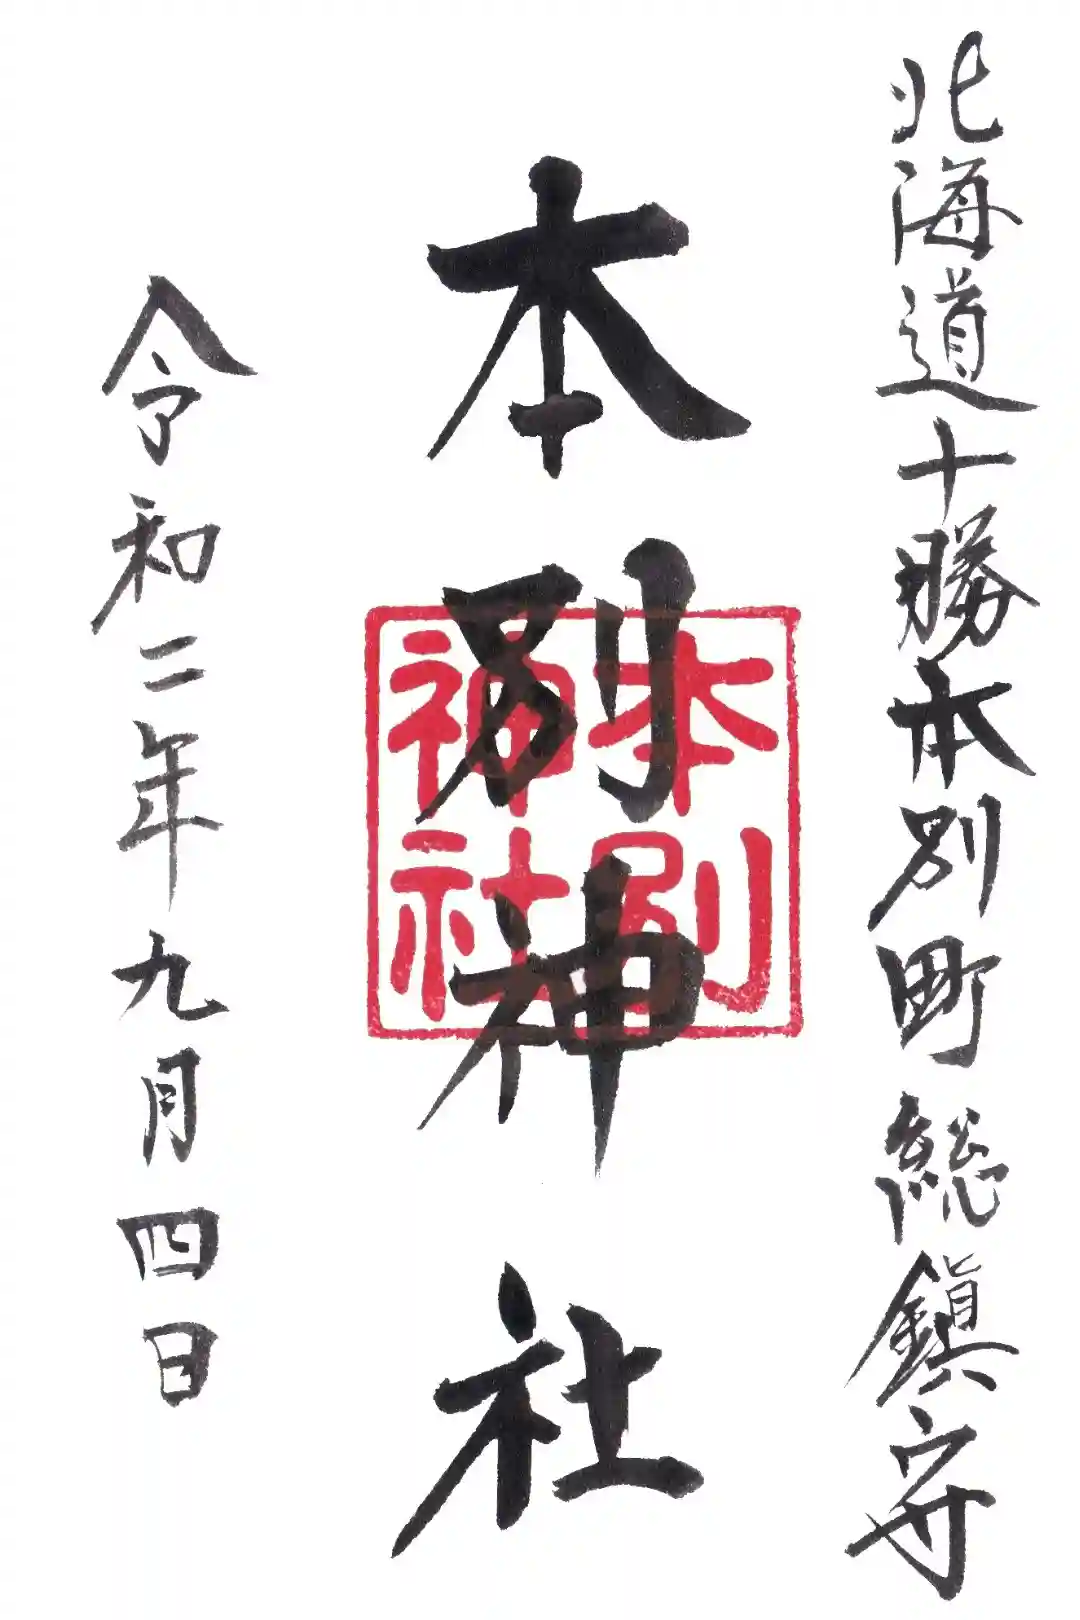 北海道十勝本別町総鎮守
本別神社
本別
神社
令和二年九月四日